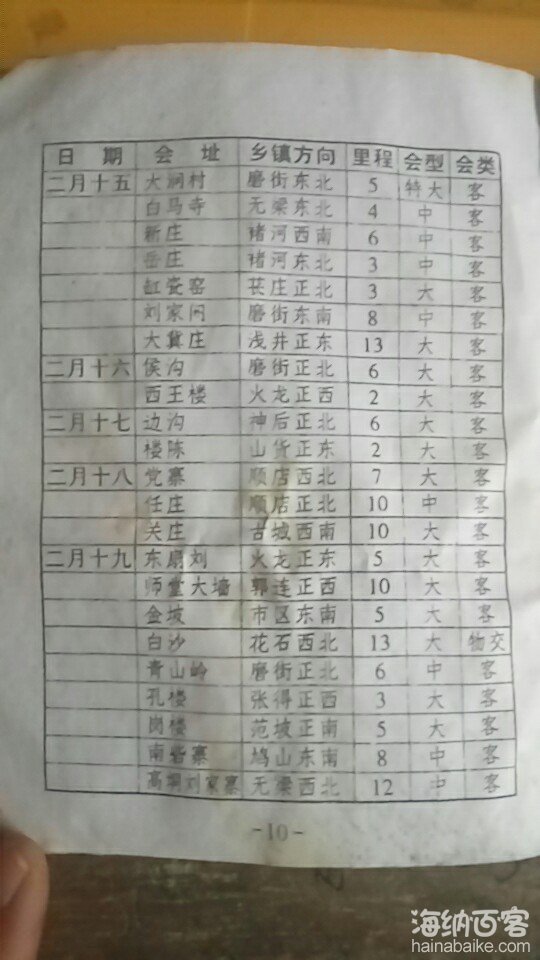 日期 会址 乡镇方向 里程 会型 会类
二月十五 大涧村 磨街东北 5 特大 客
白马寺 无梁东北 4 中 客
新庄 褚河西南 6 中 客
岳庄 褚河东北 3 中 客
缸瓷窑 苌庄正北 3 大 客
刘家问 磨街东南 8 中 客
大冀庄 浅井正东 13 大 客
二月十六 侯沟 磨街正北 6 大 客
西王楼 火龙正西 2 大 客
二月十七 边沟 神后正北 6 大 客
楼陈 山货正东 2 大 客
二月十八 党寨 顺店西北 7 大 客
任庄 顺店正北 10 中 客
关庄 古城西南 10 大 客
二月十九 东扇刘 火龙正东 5 大 客
师堂大墙 郭连正西 10 大 客
金坡 市区东南 5 大 客
白沙 花石西北 13 大 物交
青山岭 磨街正北 6 中 客
孔楼 张得正西 3 大 客
岗楼 范坡正南 5 大 客
南寨 鸠山东南 8 中 客
刘家寨 无梁西北 12 中 客
-10-
海纳百客
hainabaike.com